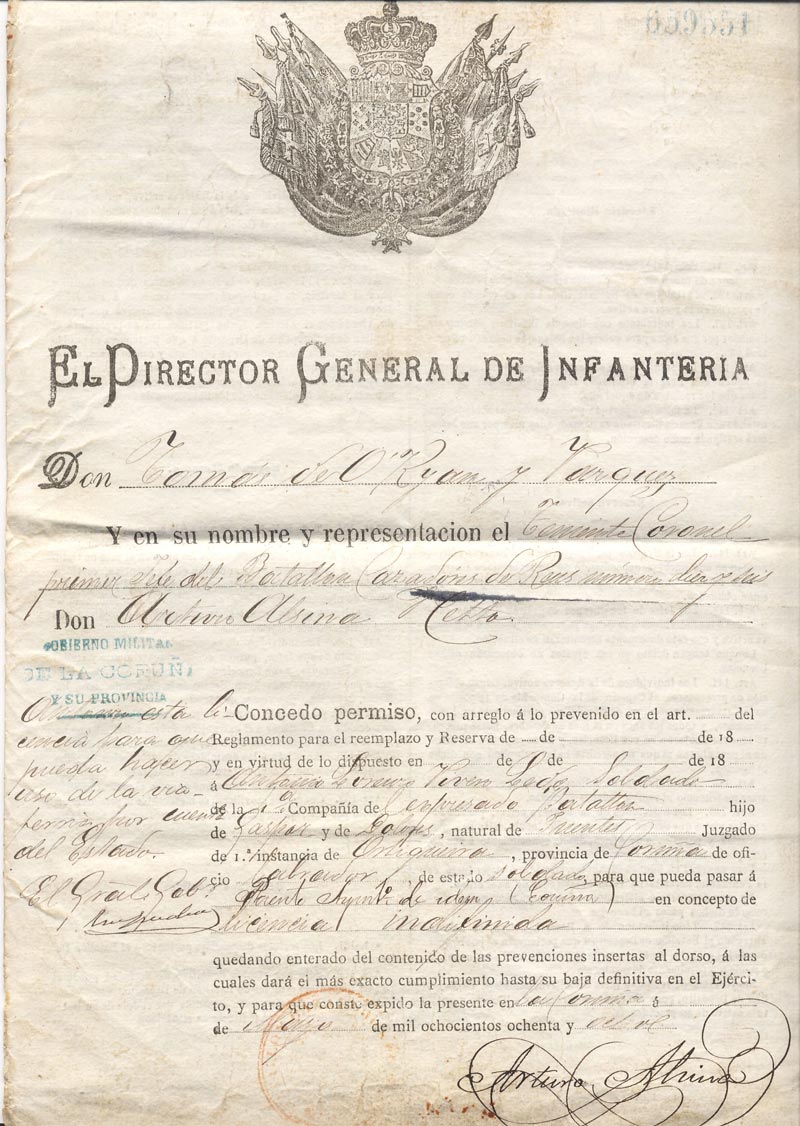 EL DIRECTOR GENERAL DE INFANTERIA
Don Tomás de O'Ryan y Vazquez
Y en su nombre y representacion el Teniente Coronel
primer Jefe del Batallon Cazadores de Reus número diez y seis
Don Arturo Alsina Netto
GOBIERNO MILITAR
DE LA CORUÑA
Y SU PROVINCIA
esta li-
cencia para que
pueda hacer
uso de la vía
ferrea por cuenta
del Estado.
El Gral. Gobr.
Concedo permiso, con arreglo á lo prevenido en el art. del
Reglamento para el reemplazo y Reserva de de de 18
y en virtud de lo dispuesto en de de de 18
á Antonio Lorenzo Vivero Soldado
de la 1ª Compañía de expresado Batallon hijo
de Gaspar y de Dolores, natural de Puentes Juzgado
de 1.ª instancia de Ortigueira, provincia de Coruña de ofi-
cio Labrador, de estado soldado para que pueda pasar á
Puente Ayuntº de idem (Coruña) en concepto de
licencia indifinida
quedando enterado del contenido de las prevenciones insertas al dorso, á las
cuales dará el más exacto cumplimiento hasta su baja definitiva en el Ejérci-
to, y para que conste expido la presente en La Coruña á
de Mayo de mil ochocientos ochenta y
Arturo Alsina